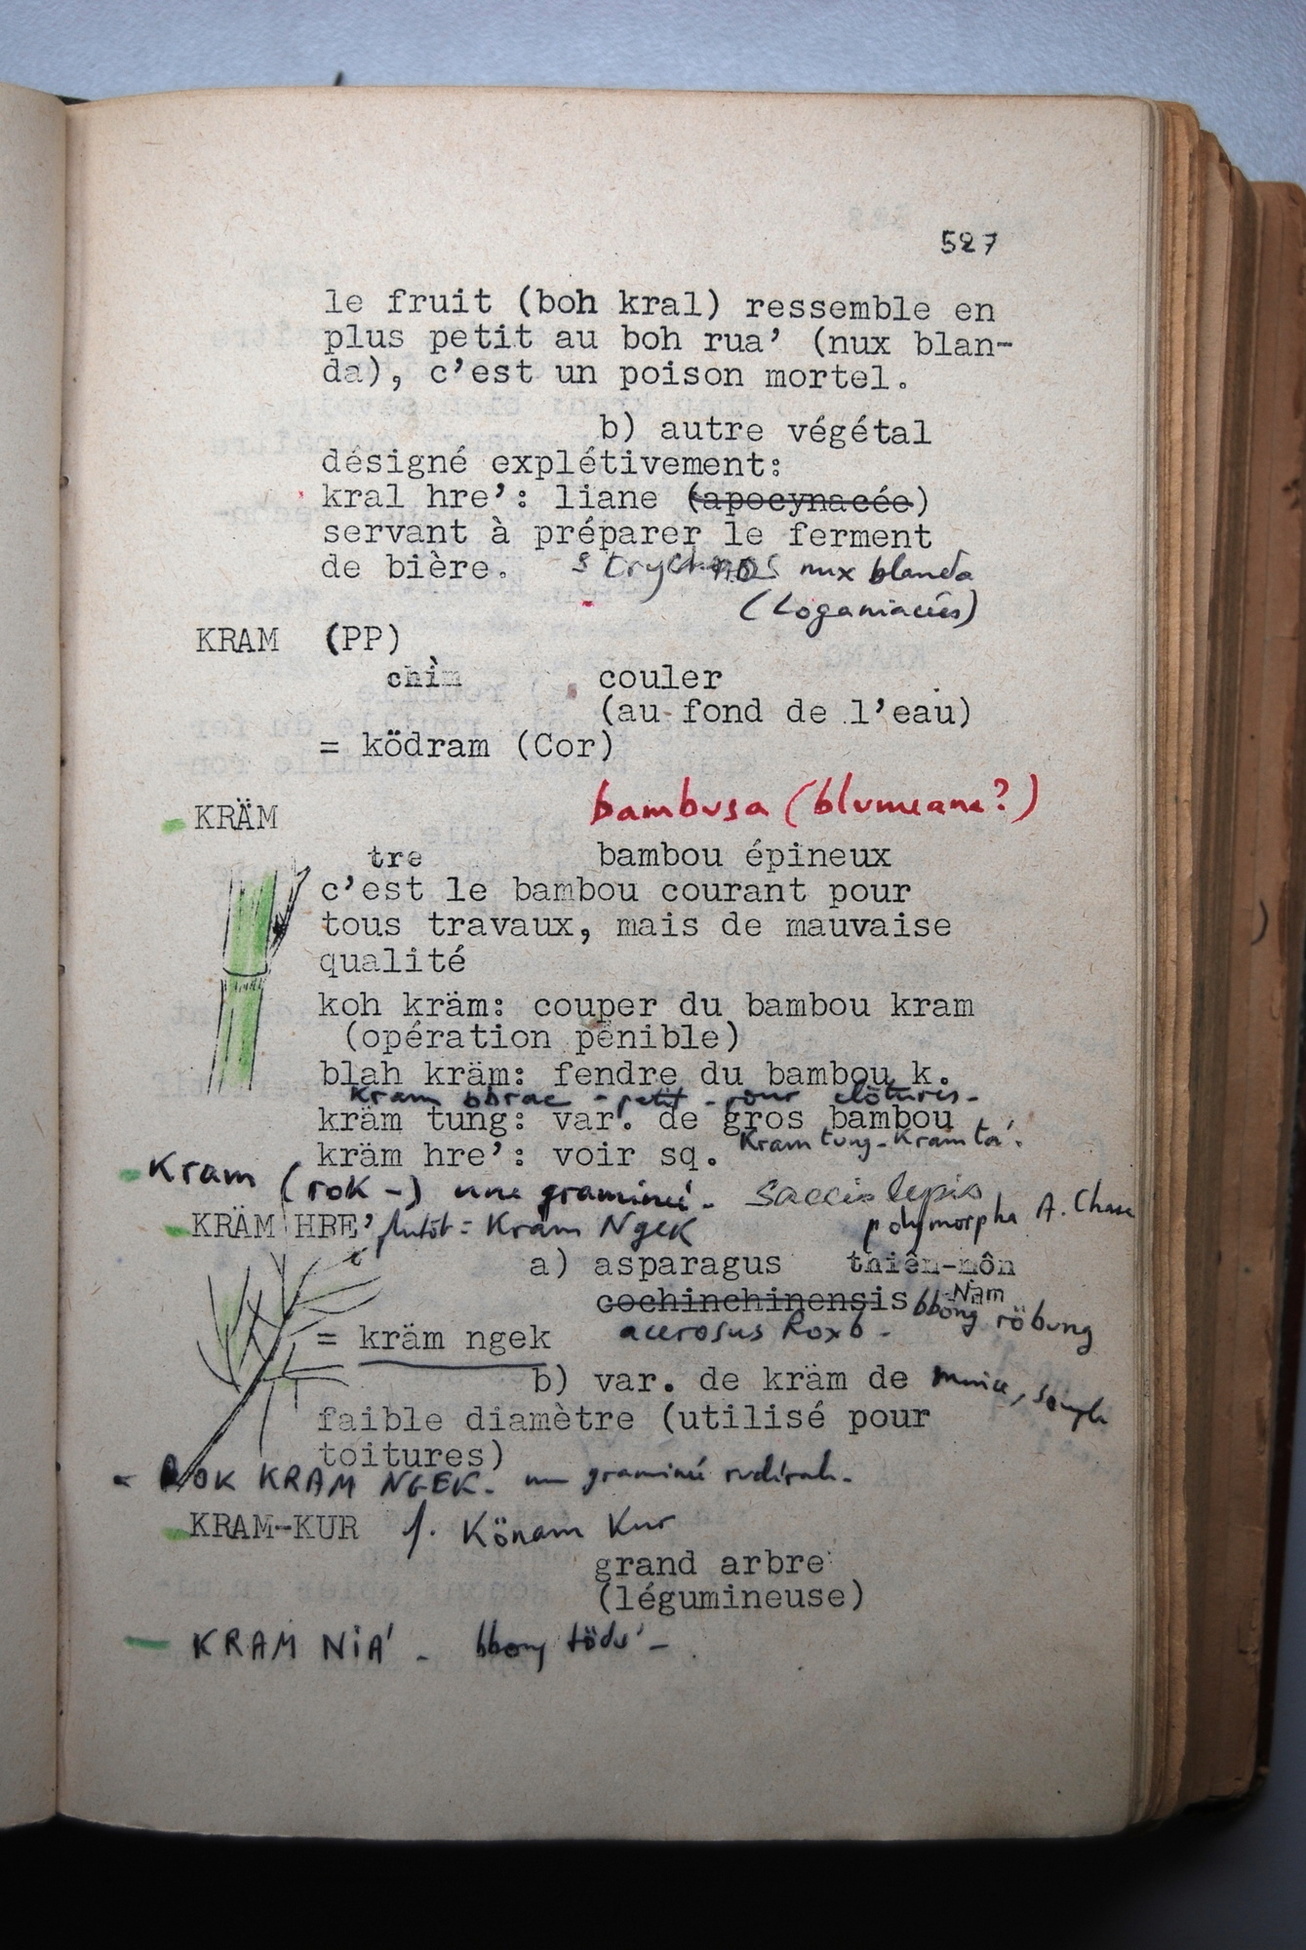 527
le fruit (boh kral) ressemble en
plus petit au boh rua’ (nux blan-
da), c’est un poison mortel.
b) autre végétal
désigné explétivement:
kral hre’: liane (apocynacée)
servant à préparer le ferment
de bière. strychnos nux blanda
(Loganiacées)
KRAM (PP)
chìm couler
(au fond de l’eau)
= ködram (Cor)
bambusa (blumeana?)
KRÄM
tre bambou épineux
c’est le bambou courant pour
tous travaux, mais de mauvaise
qualité
koh kräm: couper du bambou kram
(opération pénible)
blah kräm: fendre du bambou k.
Kram bbrac - petit - pour clôtures -
kräm tung: var. de gros bambou
kräm hre’: voir sq. Kram tung - Kram
Kram (rok -) une graminée - Sacciolepis
polymorpha A. Chase
KRÄM HRE’ plutôt = Kram Ngek
a) asparagus thiên-môn
cochinchinensis bbong röbung
Nam
acerosus Roxb -
= kräm ngek
b) var. de kräm de mince, souple
faible diamètre (utilisé pour
toitures)
ROK KRAM NGEK - une graminée rudérale -
KRAM-KUR Könam Kur
grand arbre
(légumineuse)
KRAM NIA' - bbong